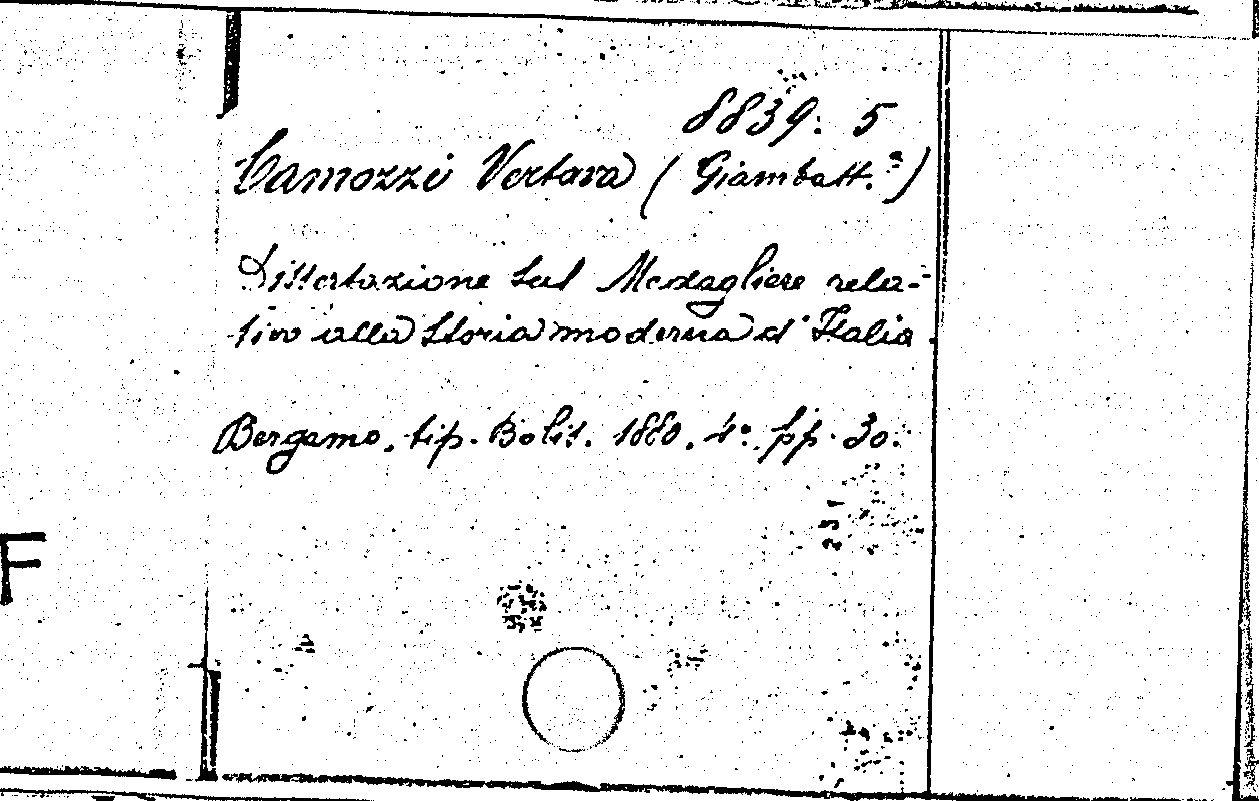 8839: 5
Camozzi Vertova (Giambatt.ª)
Dissertazione sul Medagliere rela-
tivo alla Storia moderna d'Italia.
Bergamo, tip. Bolis. 1880. 4º. pp. 30.
231
F